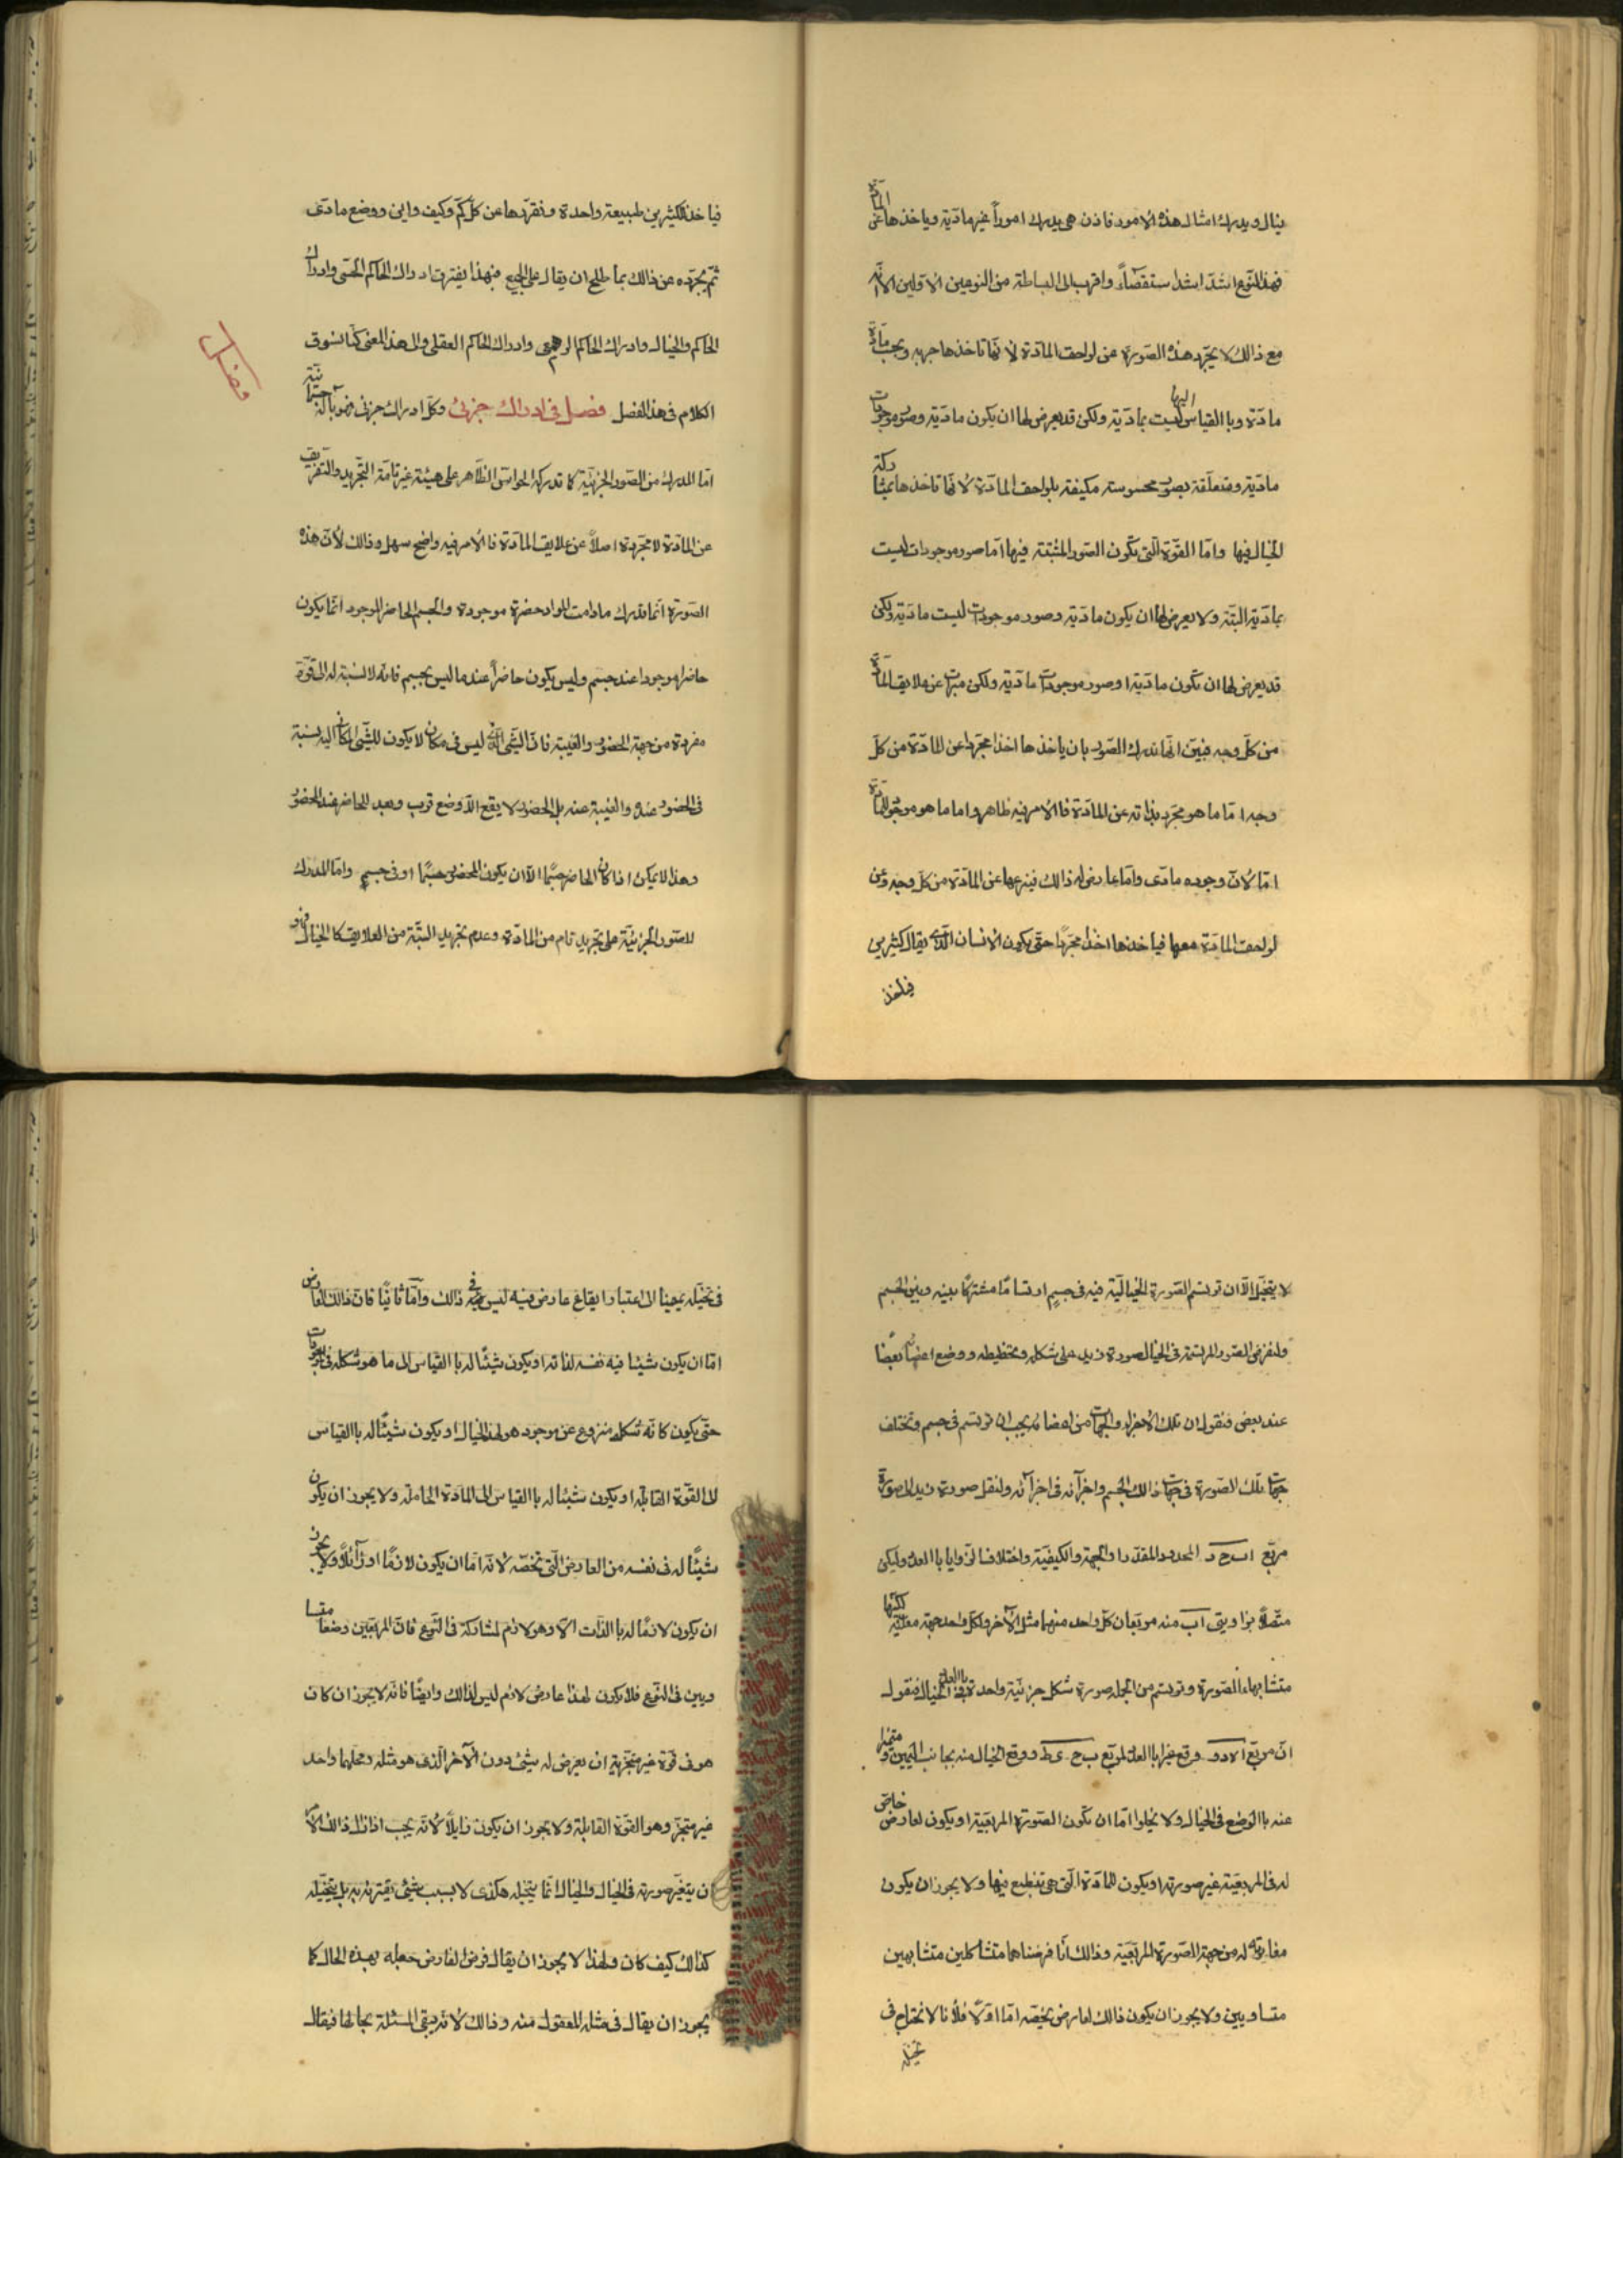 ينال ويدرك امثال هذه الامور فاذن هى يدرك اموراً غير مادّية وياخذها عن المادّة
فهذا النّوع اشدّ اشدا ستقصآءً واقرب الى البساطة من النوعين الاوّلين الاّ انّه
مع ذالك لا يجّرد هذه الصّورة عن لواحق المادّة لانّها تاخذها جزيه وبحسب مادّة
مادّة وبا القياس اليها ليست بمادّية ولكن قد يعرض لها ان يكون مادّية وصور موجودات
مادّية ومتعلّقة بصور محسوسة مكيفة بلواحق المادّة لانّها تاخذها بمشاركة
الخيال فيها وامّا القوّة الّتى تكون الصّور المثبتة فيها امّا صور موجودات ليست
بمادّية البتّة ولا يعرض لها ان يكون مادّية وصور موجودات ليست مادّية ولكن
قد يعرض لها ان تكون مادّية او صور موجودات مادّية ولكن مبرات عن علايق المادّة
من كلّ وجه فبيّن انّها تدرك الصّور بان ياخذها اخذا مجرّدا عن المادّة من كلّ
وجه امّا ما هو مجّرد بذاته عن المادّة فا الامر فيه ظاهر واما ما هو موجود للمادّة
امّا لانّ وجوده مادّى وامّا عارض له ذالك فينزعها عن المادّة من كلّ وجه وعن
لواحق المادّة معها فياخذها اخذاً مجرّدًا حتّى يكون الانسان الّذى يقال كثيرين
فياخذ
فياخذ لكثيرين طبيعة واحدة وتفرّدها عن كلّ كمّ وكيف واين ووضع مادّى
ثمّ يجرّده عن ذالك بما يصلح ان يقال على الجميع فبهذا يفترق ادراك الحاكم الحسّى وادراك
الحاكم والخيال وادراك الحاكم الوهمى وادراك الحاكم العقلى والى هذ المعنى كنّا نسوق
الكلام فى هذ الفصل فصل فى ادراك جزئى وكلّ ادراك جزئى فهو بآلة جسمانيّة
فصل
امّا المدرك من الصّور الجزئيّة كما تدركه الحواسّ الظّاهر على هيئة غير تامّة التّجريد والتّفريق
عن المادّة لا مجّردة اصلاً عن علايق المادّة فا الامر فيه واضح سهل وذالك لأنّ هذه
الصّورة انّما تدرك مادامت المواد حضرة موجودة والجسم الحاضر الموجود انّما يكون
حاضرا موجودا عند جسم وليس يكون حاضراً عند ما ليس بجسم فانّه لا نسبة له الى قوّة
مفردة من جهة الحضور والغيبة فانّ الشّى الّذى ليس فى مكان لا يكون للشّى المكانى اليه نسبة
فى الحضور عنده والغيبة عنه بل الحضور لا يقع الاّ وضع قرب وبعد للحاضر عند الحضور
وهذا لا يمكن اذا كان الحاضر جسمًا الاّ ان يكون المحضور جسمًا او فى جسم وامّا المدرك
للصّور الجزئيّة على تجريد تام من المادّة وعدم تجريد البتّة من العلايق كا الخيال فهو
لا يتخيّل الاّ ان ترتسم الصّورة الخياليّة فيه فى جسمٍ ارتسامًا مشتركًا بينه وبين الجسم
ولنفرض الصّور المرتسمة فى الخيال صورة زيد على شكله وتخطيطه ووضع اعضائه بعضها
عند بعض فنقول ان تلك الاجزاء والجهات من اعضائه يجب ان ترتسم فى جسم وتختلف
جهات تلك الصّورة فى جهات ذالك الجسم واجزآئه فى اجزآئه ولننقل صورة زيد الى صورة
مربّع ا ب ج د المحدود المقدّر والجهة والكيفيّة واختلاف الزّوايا باالعدد وليكن
متّصلاً بزاويتى اب منه مربّعان كلّ واحد منهما مثل الآخر ولكلّ واحد جهة معيّنة لكنّهما
متشابها الصّورة وترتسم من الجمله صورة شكل جزئيّة واحدة باالعدد فى الخيال فنقول
انّ مربّع ا ه د و وقع غيرا باالعدد لمربّع ب ح ى ط ووقع الخيال منه بجانب اليمين ومتميّزا
عنه باالوضع فى الخيال ولا يخلوا امّا ان تكون الصّورة المربّعيّة او يكون لعارض خاصّ
له فى المربّعيّة غير صورته او يكون للمادّة الّتى هى تنطبع فيها ولا يجوز ان يكون
مغايرته له من جهة الصّورة المربّعيّة وذالك انّا فرضناهما متشاكلين متشابهين
متساويين ولا يجوز ان يكون ذالك لعارض يخصّه امّا اوّلاً فلأنا لا نحتاج فى
تخيله
فى تخيّله يمينا الى اعتبار ايقاع عارض فيه ليس فى ذالك وامّا ثانيًا فانّ ذالك العارض
امّا ان يكون شيئا فيه نفسه لذاته او يكون شيئًا له باالقياس الى ما هو شكله فى الموجودات
حتّى يكون كانّه شكل منزوع عن موجود هو لهذ الخيال او يكون شيئًا له باالقياس
الى القوّة القابلة او يكون شيئا له باالقياس الى المادّة الحاملة ولا يجوز ان يكون
شيئًا له فى نفسه من العارض الّتى تخصّه لانّه امّا ان يكون لازمًا او زآئلاً ولا يجوز
ان يكون لازمًا له باالذّات الاّ وهو لازم لمشاركه فى النّوع فانّ المربّعين وضعا متساو
ويين فى النّوع فلا يكون لهذا عارض لازم ليس لذالك وايضًا فانّه لا يجوز ان كان
هو فى قوّة غير متجزّية ان يعرض له شيئ دون الآخر الّذى هو مثله ومحلهما واحد
غير متجزّ وهو القوّة القابلة ولا يجوز ان يكون زايلًا لانّه يجب اذا زال ذالك الامر
ان يتغيّر صورته فى الخيال والخيال انّما يتخيله هكذى لا بسبب شيئ يقترنه به بل يتخيّله
كذالك كيف كان ولهذا لا يجوز ان يقال فرض الفارض جعله بهذه الحال كما
يجوز ان يقال فى مثله المعقول منه وذالك لانّه يبقى المسئلة بحالها فيقال